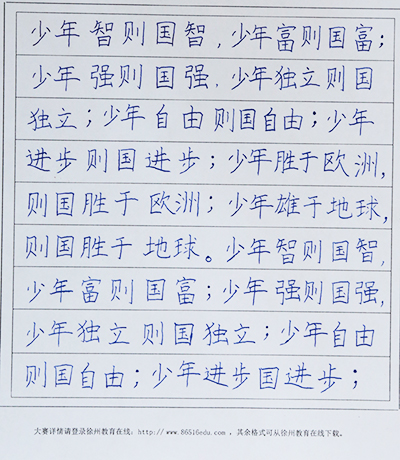 少年智则国智,少年富则国富;
少年强则国强,少年独立则国
独立;少年自由则国自由;少年
进步则国进步;少年胜于欧洲,
则国胜于欧洲;少年雄于地球,
则国胜于地球。少年智则国智,
少年富则国富;少年强则国强,
少年独立则国独立;少年自由
则国自由;少年进步国进步;
大赛详情请登录徐州教育在线:http://www.86516edu.com ,其余格式可从徐州教育在线下载。